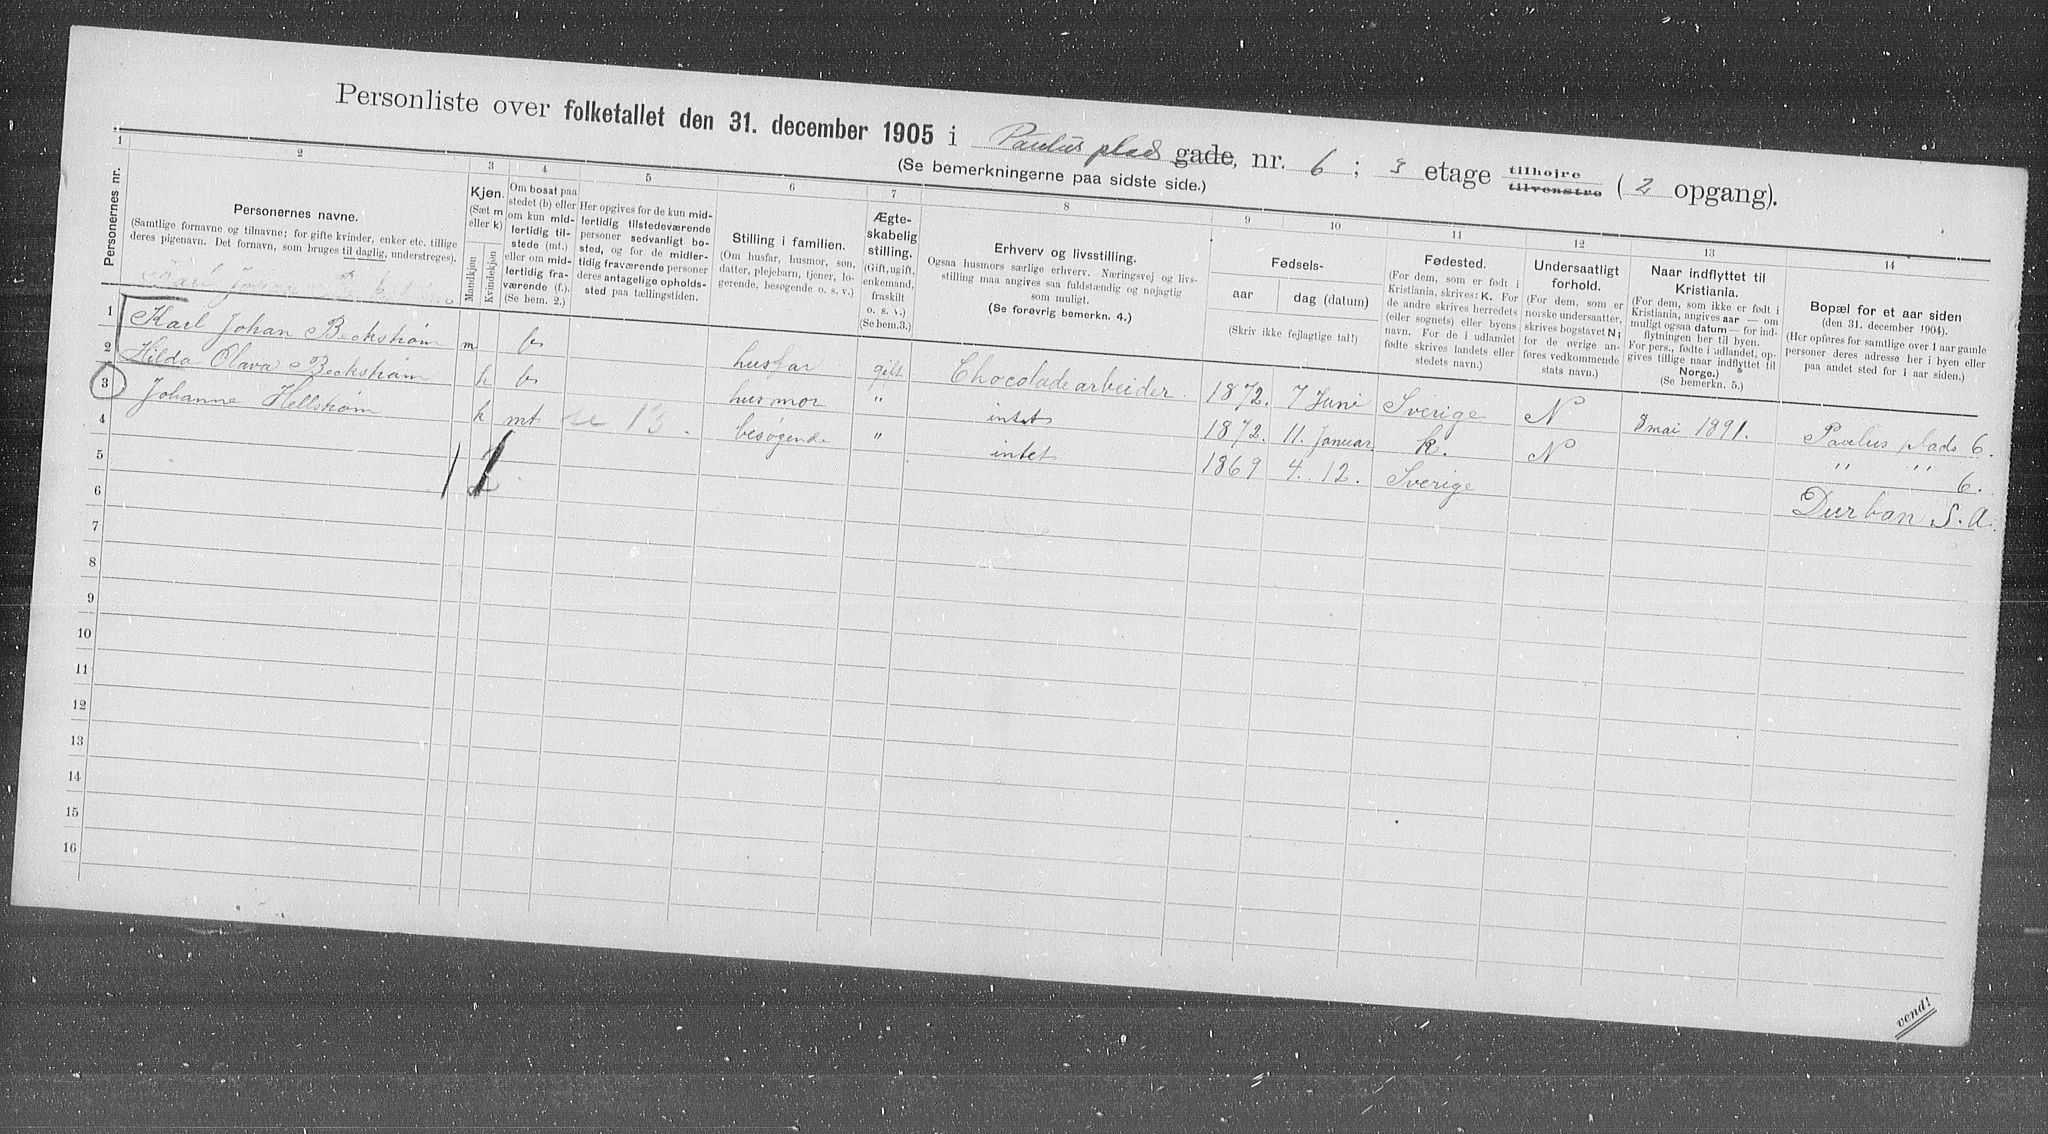 Personliste over folketallet den 31. december 1905 i Paulus plads gade, nr. 6 ; 3 etage tilhøjre tilvenstre ( 2 opgang).
(Se bemerkningerne paa sidste side.)
1 2 3 4 5 6 7 8 9 10 11 12 13 14
Personernes nr.
Personernes navne.
(Samtlige fornavne og tilnavne; for gifte kvinder, enker etc. tillige
deres pigenavn. Det fornavn, som bruges til daglig, understreges).
Kjøn.
(Sæt m
eller k)
Mandkjøn
Kvindekjøn
Om bosat paa
stedet (b) eller
om kun mid-
lertidig til-
stede (mt.)
eller om mid-
lertidig fra-
værende (f.).
(Se bem. 2.)
Her opgives for de kun mid-
lertidig tilstedeværende
personer sedvanligt bo-
sted, og for de midler-
tidig fraværende personer
deres antagelige opholds-
sted paa tællingstiden.
Stilling i familien.
(Om husfar, husmor, søn,
datter, plejebarn, tjener, lo-
gerende, besøgende o. s. v.)
Ægte-
skabelig
stilling.
(Gift, ugift,
enkemand,
fraskilt
o. s. v.)
(Se bem.3.)
Erhverv og livsstilling.
Ogsaa husmors særlige erhverv. Næringsvej og livs-
stilling maa angives saa fuldstændig og nøjagtig
som muligt.
(Se forøvrig bemerkn. 4.)
Fødsels-
aar
dag (datum)
(Skriv ikke fejlagtige tal!)
Fødested.
(For dem, som er født i
Kristiania, skrives: K. For
de andre skrives herredets
(eller sognets) eller byens
navn. For de i udlandet
fødte skrives landets eller
stedets navn.)
Undersaatligt
forhold.
(For dem, som er
norske undersaatter,
skrives bogstavet N;
for de øvrige an-
føres vedkommende
stats navn.)
Naar indflyttet til
Kristiania.
(For dem, som ikke er født i
Kristiania, angives aar — om
muligt ogsaa datum — for ind-
flytningen her til byen.
For pers., fødte i udlandet, op-
gives tillige naar indflyttet til
Norge.)
(Se bemerkn. 5.)
Bopæl for et aar siden
(den 31. december 1904).
(Her opføres for samtlige over 1 aar gamle
personer deres adresse her i byen eller
paa andet sted for 1 aar siden.)
Karl Johan
1 Karl Johan Beckstrøm m b husfar gift Chocoladearbeider. 1872. 7 Juni Sverige N 8 mai 1891. Paulus plads 6.
2 Hilda Olava Beckstrøm k b husmor " intet 1872. 11. Januar k. N " " 6.
3 Johanne Hellstrøm k mt 13. besøgende " intet 1869 4. 12. Sverige Durban S. A.
4
5
6
7
8
9
10
11
12
13
14
15
16
vend!